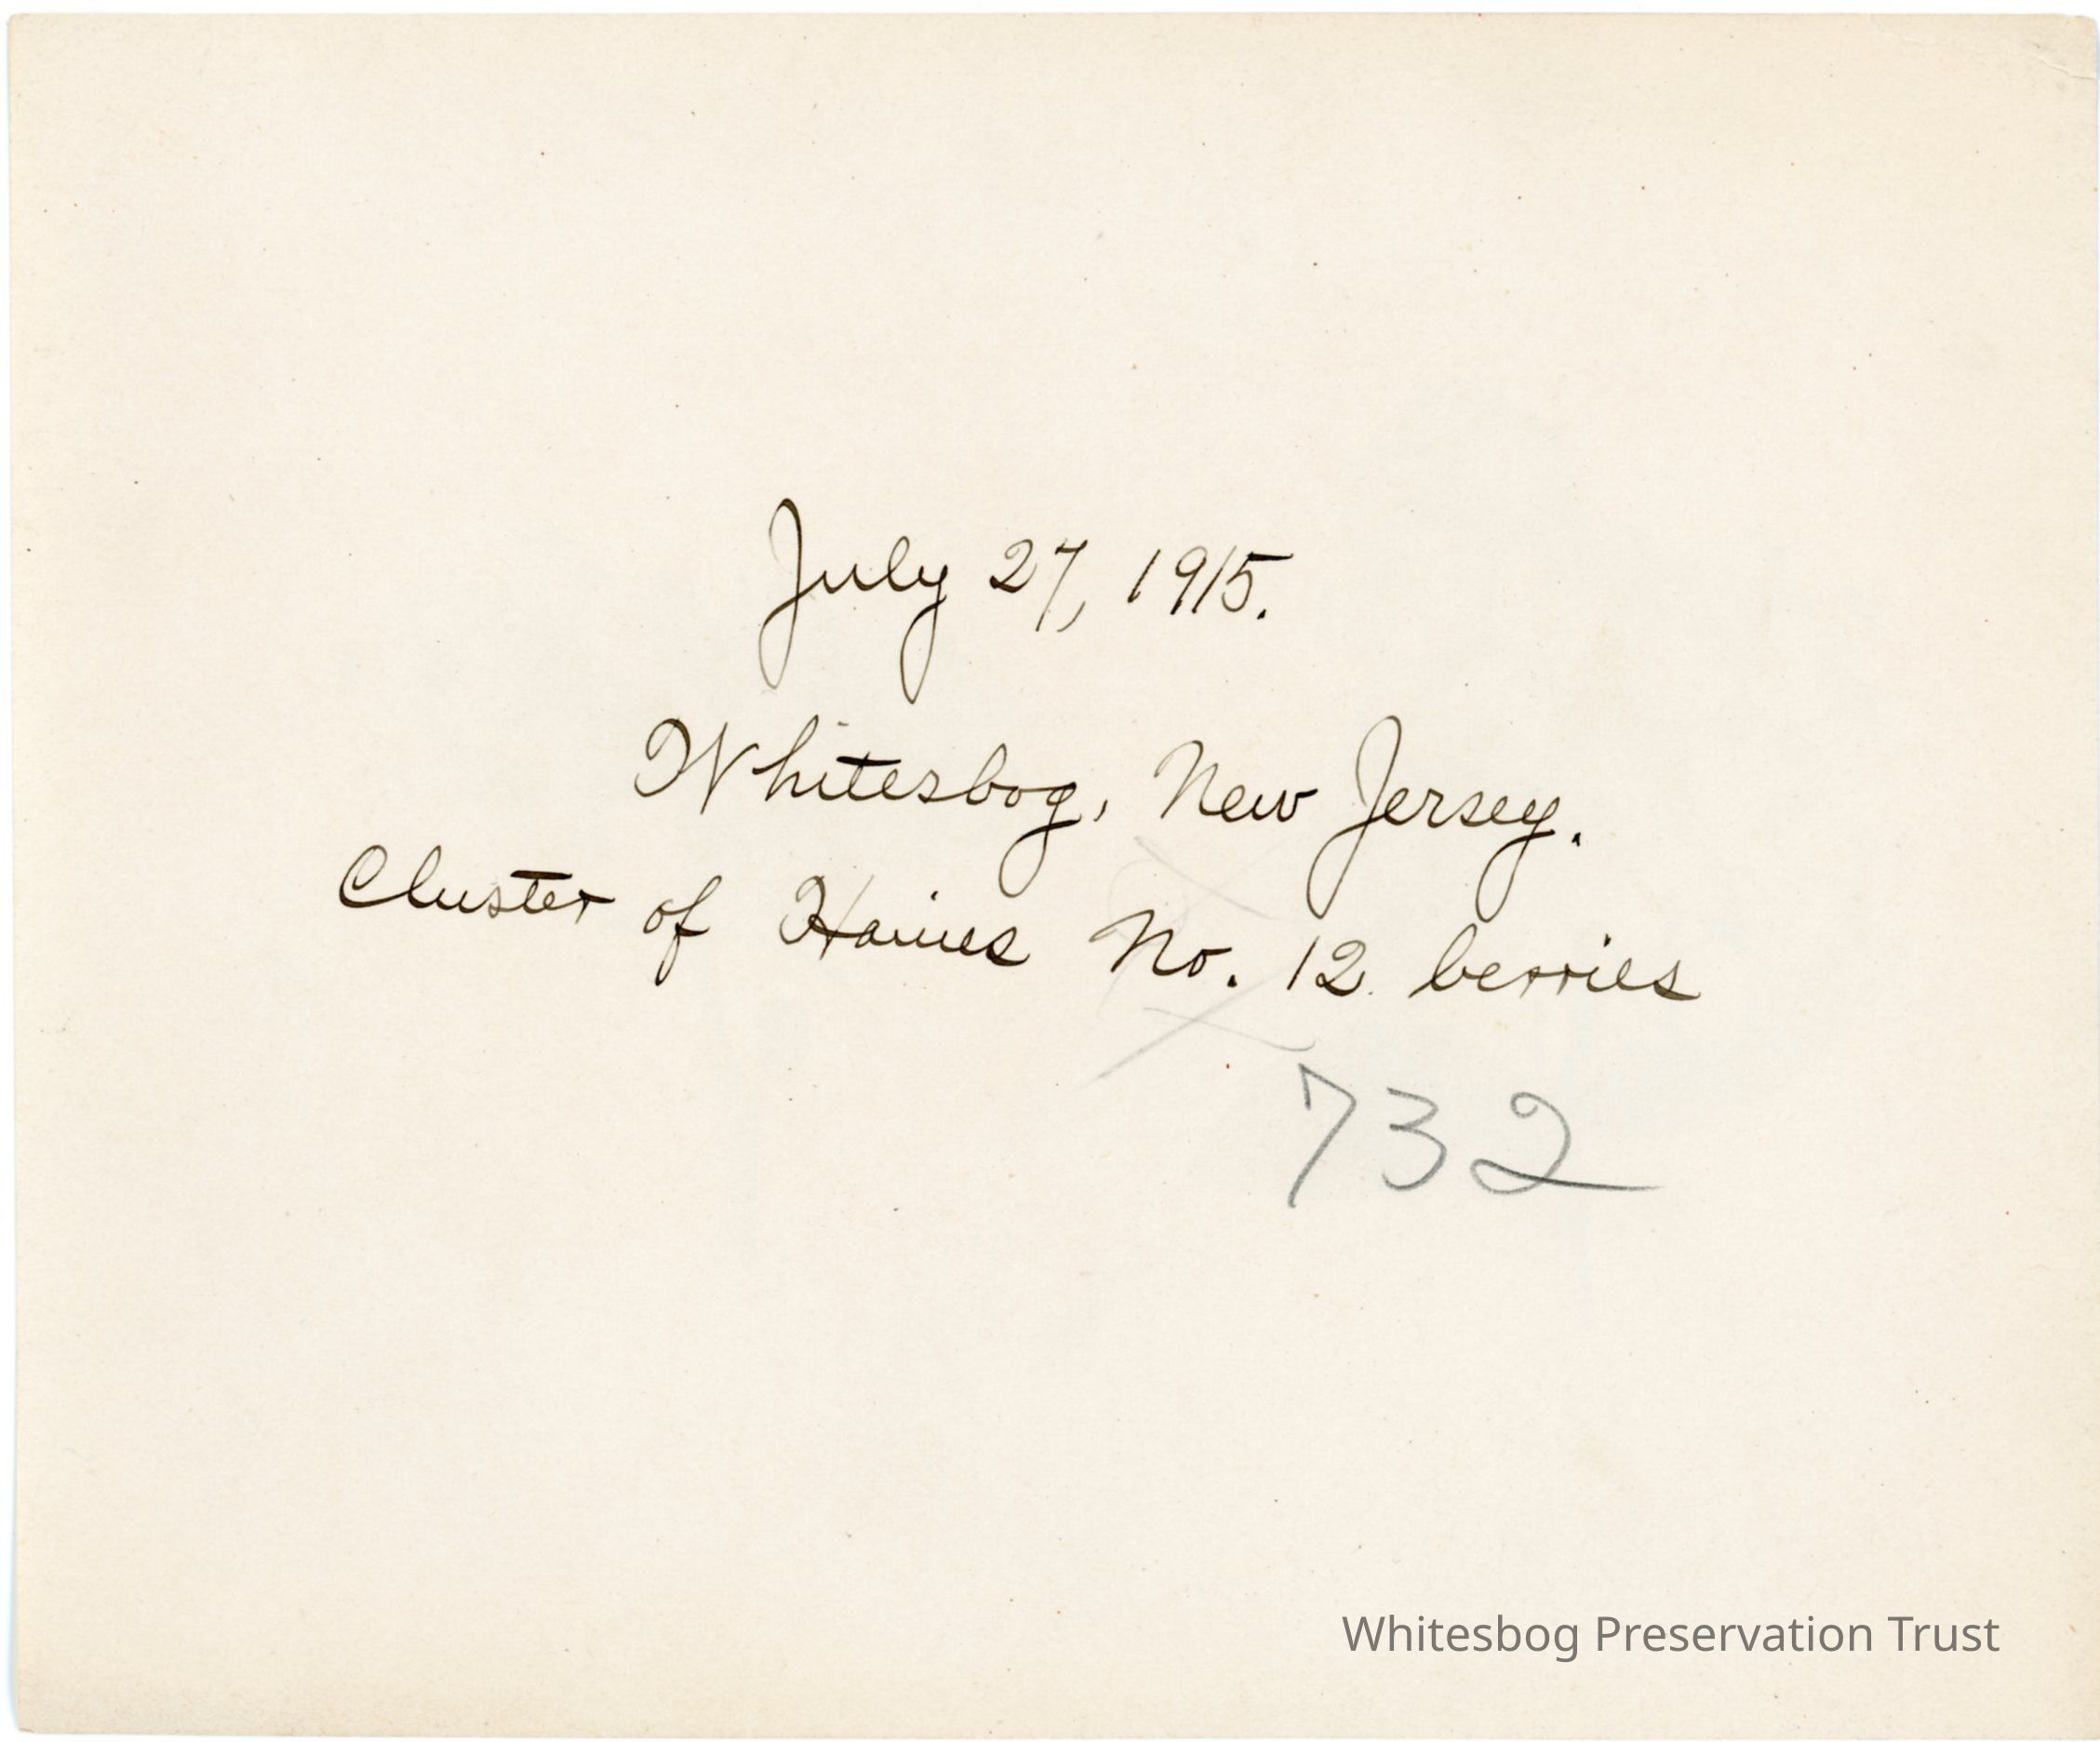 July 27, 1915.
Whitesbog, New Jersey.
Cluster of Haines No. 12 berries
732
Whitesbog Preservation Trust